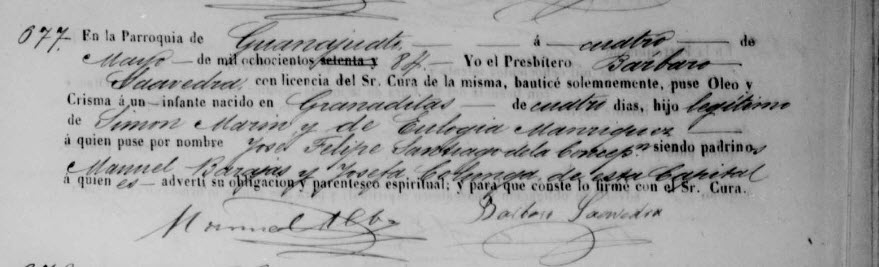 677. En la Parroquia de Guanajuato á cuatro de
Mayo de mil ochocientos setenta y 84. Yo el Presbítero Bárbaro
Saavedra con licencia del Sr. Cura de la misma, bauticé solemnemente, puse Oleo y
Crisma á un infante nacido en Granaditas de cuatro dias, hijo legítimo
de Simon Marin y de Eulogia Manriquez
á quien puse por nombre José Felipe Santiago de la Concepn siendo padrinos
Manuel Barajas y Josefa de esta Capital
á quienes advertí su obligacion y parentesco espiritual; y para que conste lo firmé con el Sr. Cura.
Barbaro Saavedra